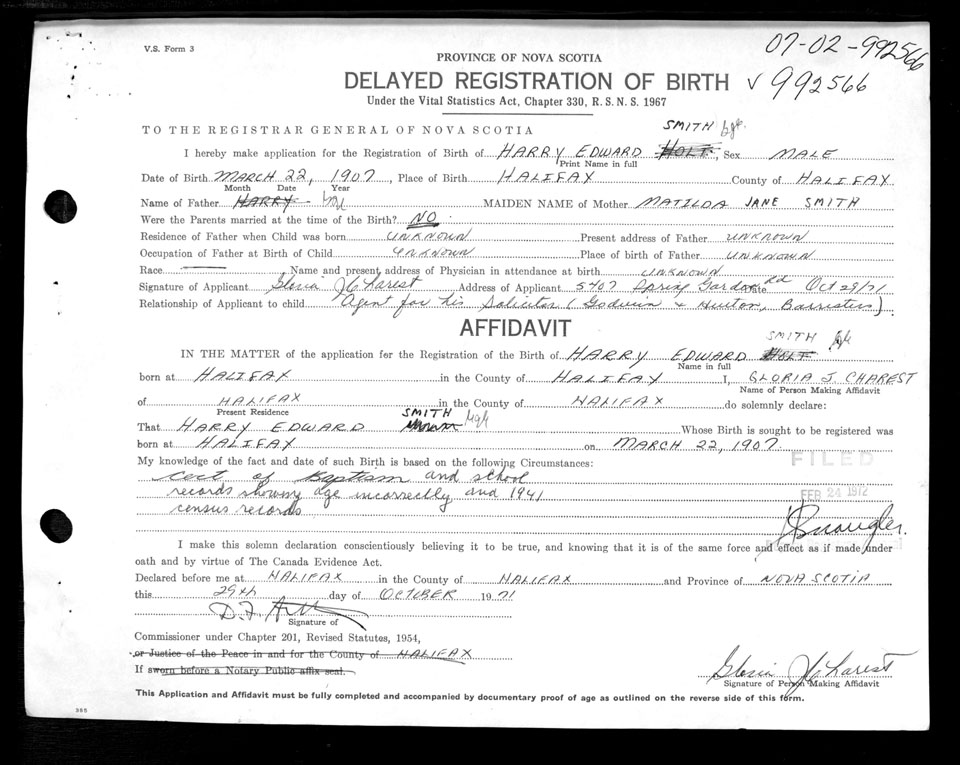 07-02-992566
V.S. Form 3
PROVINCE OF NOVA SCOTIA
DELAYED REGISTRATION OF BIRTH
√ 992566
Under the Vital Statistics Act, Chapter 330, R. S. N. S. 1967
TO THE REGISTRAR GENERAL OF NOVA SCOTIA
SMITH
I hereby make application for the Registration of Birth of HARRY EDWARD HOLT, Sex MALE
Print Name in full
Date of Birth MARCH 22, 1907, Place of Birth HALIFAX County of HALIFAX
Month Date Year
Name of Father HARRY MAIDEN NAME of Mother MATILDA JANE SMITH
Were the Parents married at the time of the Birth? NO.
Residence of Father when Child was born UNKNOWN Present address of Father UNKNOWN
Occupation of Father at Birth of Child UNKNOWN Place of birth of Father UNKNOWN
Race Name and present address of Physician in attendance at birth UNKNOWN
Signature of Applicant Gloria J Charest Address of Applicant 5407 Spring Garden Rd Date Oct 29/71
Relationship of Applicant to child Agent for his Solicitor (Godwin & Huston, Barristers)
AFFIDAVIT
SMITH
IN THE MATTER of the application for the Registration of the Birth of HARRY EDWARD HOLT
Name in full
born at HALIFAX in the County of HALIFAX I, GLORIA J. CHAREST
Name of Person Making Affidavit
of HALIFAX in the County of HALIFAX do solemnly declare:
Present Residence
SMITH
That HARRY EDWARD Whose Birth is sought to be registered was
born at HALIFAX on MARCH 22, 1907.
FILED
My knowledge of the fact and date of such Birth is based on the following Circumstances:
cert of Baptism and school
records showing age incorrectly and 1941
FEB 24 1972
census records
I make this solemn declaration conscientiously believing it to be true, and knowing that it is of the same force and effect as if made under
oath and by virtue of The Canada Evidence Act.
Declared before me at HALIFAX in the County of HALIFAX and Province of NOVA SCOTIA
this 29th day of OCTOBER 1971
Signature of
Commissioner under Chapter 201, Revised Statutes, 1954,
or Justice of the Peace in and for the County of HALIFAX
If sworn before a Notary Public affix seal.
Gloria J Charest
Signature of Person Making Affidavit
This Application and Affidavit must be fully completed and accompanied by documentary proof of age as outlined on the reverse side of this form.